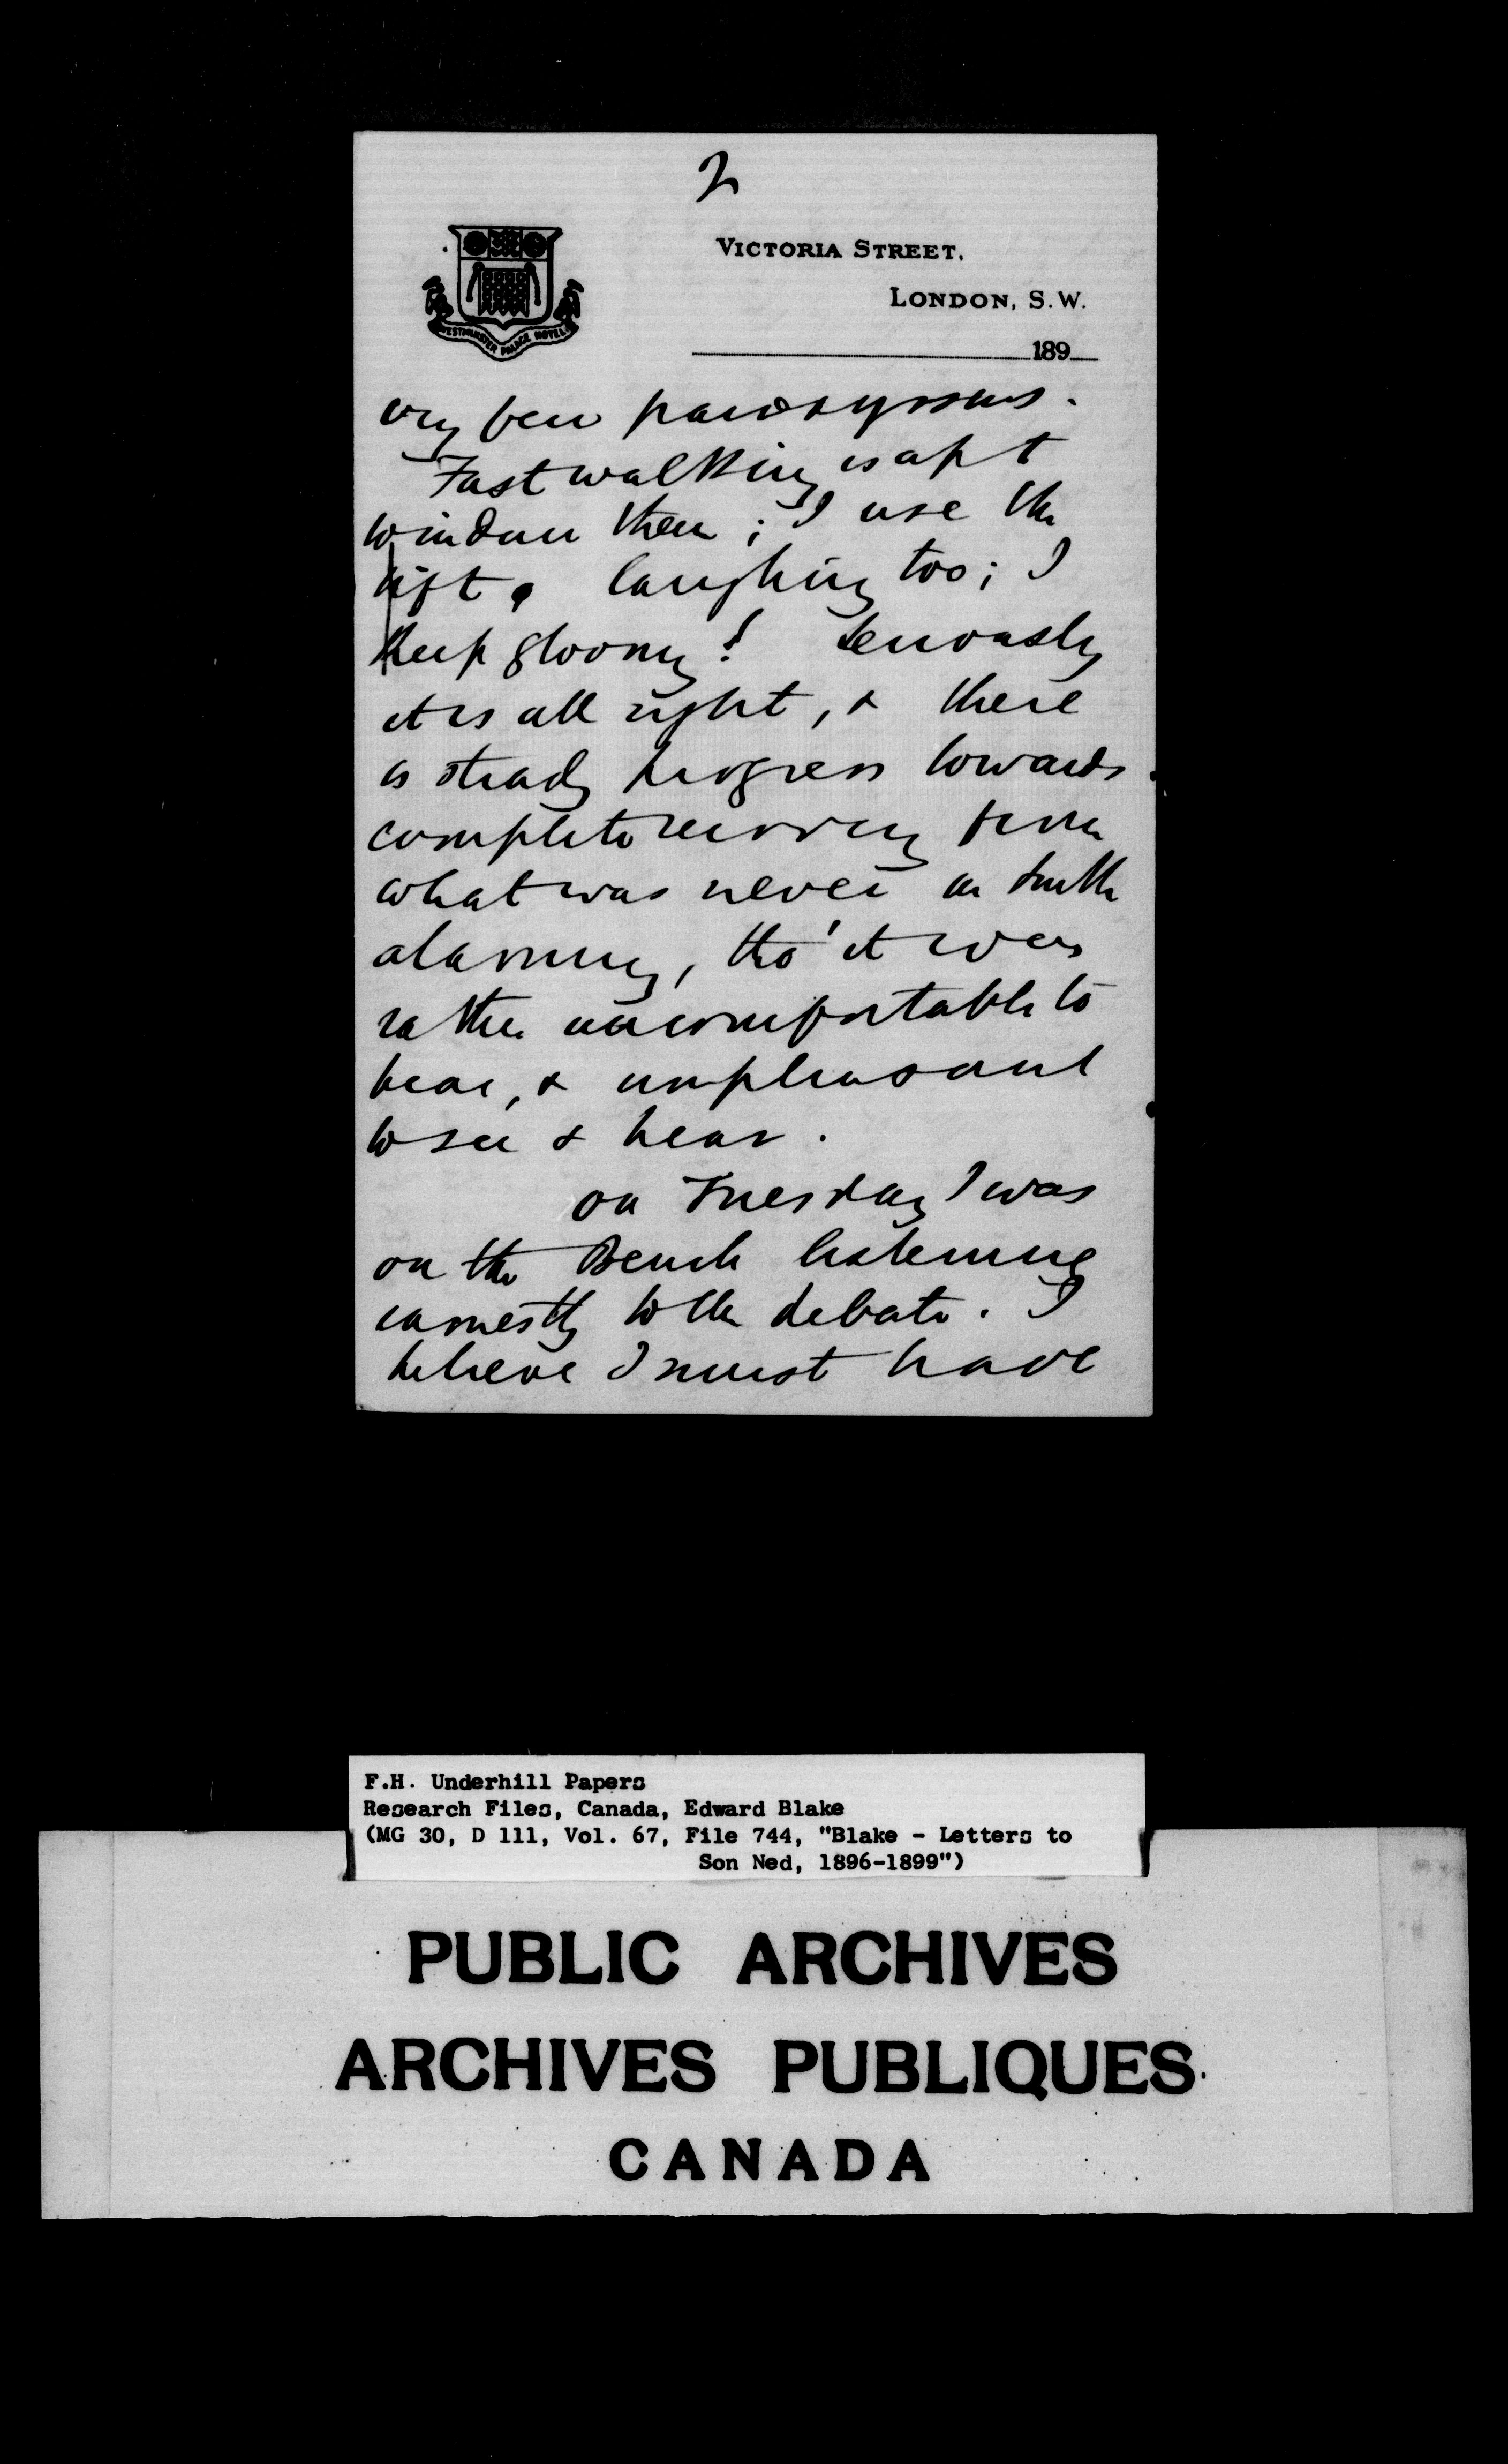 2
VICTORIA STREET,
LONDON, S.W.
189
WESTMINSTER PALACE HOTEL
very few paroxysms.
Fast walking is apt
to induce them; I use the
lift. laughing too; I
keep gloomy! Seriously
it is all right, & there
is steady progress towards
complete recovery from
what was never in truth
alarming, tho' it was
rather uncomfortable to
bear, & unpleasant
to see & hear.
On Tuesday I was
on the Bench listening
earnestly to the debate. I
believe I must have
F.H. Underhill Papers
Research Files, Canada, Edward Blake
(MG 30, D 111, Vol. 67, File 744, "Blake - Letters to
Son Ned, 1896-1899")
PUBLIC ARCHIVES
ARCHIVES PUBLIQUES
CANADA